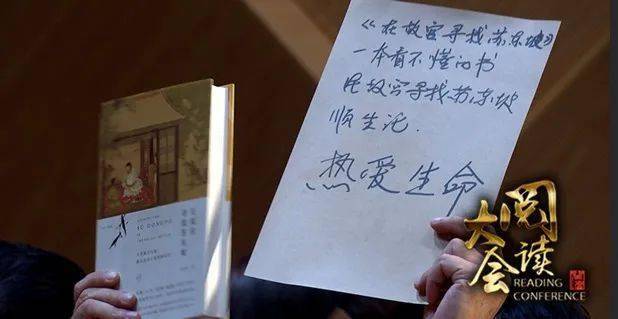 《在故宫寻找苏东坡》
一本看不懂的书
故宫寻找苏东坡
顺生
热爱生命
SU DONGPO
阅读大会
READING
CONFERENCE